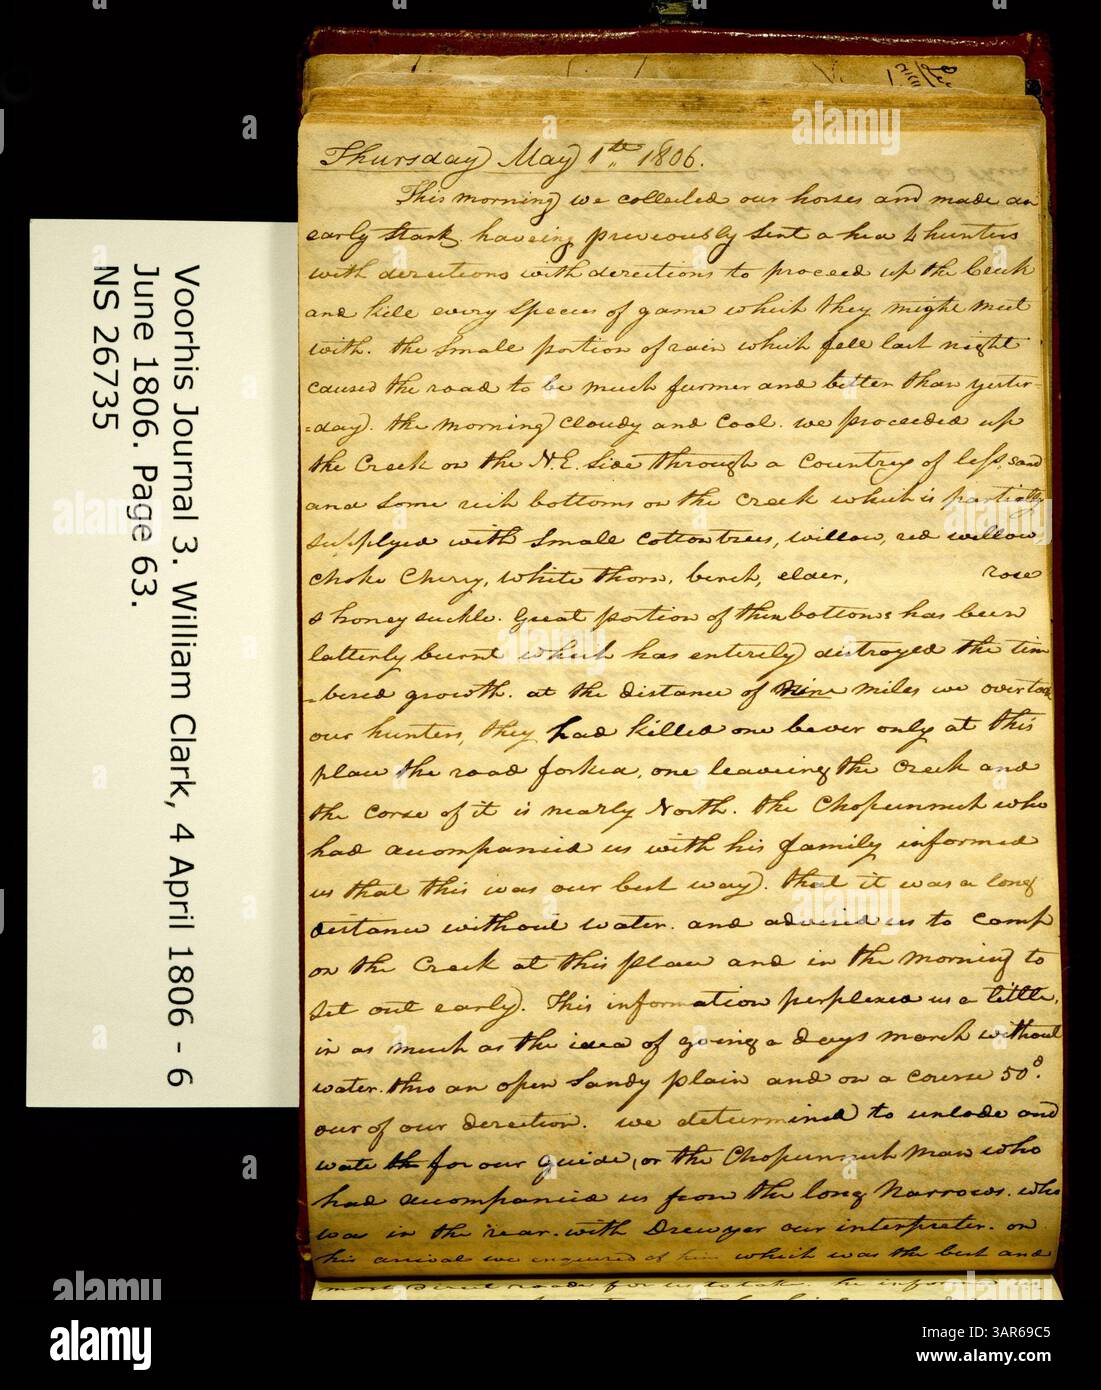 Thursday May 1th 1806.
This morning we collected our horses and made an
early Start, haveing preveously Sent a hea 4 hunters
with derections with derections to proceed up the Creek
and kill every Species of game which they might meet
with. the Small portion of rain which fell last night
caused the road to be much furmer and better than yester-
=day. the morning Cloudy and Cool. we proceeded up
the Creek on the N.E. Side through a countrey of less Sand
and Some rich bottoms on the Creek which is partially
Supplyed with Small Cotton trees, willow, red willow,
choke Cherry, white thorn, birch, elder, rose
& honey suckle. Great portion of these bottoms has been
latterly burnt which has entirely distroyed the tim
=bered growth. at the distance of nine miles we overtook
our hunters, they had killed one bever only at this
place the road forked, one leaveing the Creek and
the corse of it is nearly North. the Chopunnish who
had acompanied us with his family informed
us that this was our best way. that it was a long
distance without water. and advised us to camp
on the Creek at this place and in the morning to
Set out early. This information perplexed us a little,
in as much as the idea of going a days march without
water. thro an open Sandy plain and on a course 50°.
our of our derection. we determined to unlode and
wate th for our guide, or the Chopunnish man who
had acompanied us from the long Narrows. who
was in the rear. with Drewyer our interpreter. on
his arrival we enquired of him which was the best and
most direct roade for us to take. he informed
Voorhis Journal 3. William Clark, 4 April 1806 - 6
June 1806. Page 63.
NS 26735
alamy
alamy
alamy
alamy
alamy
a
a
a
a
alamy
Image ID: 3AR69C5
www.alamy.com